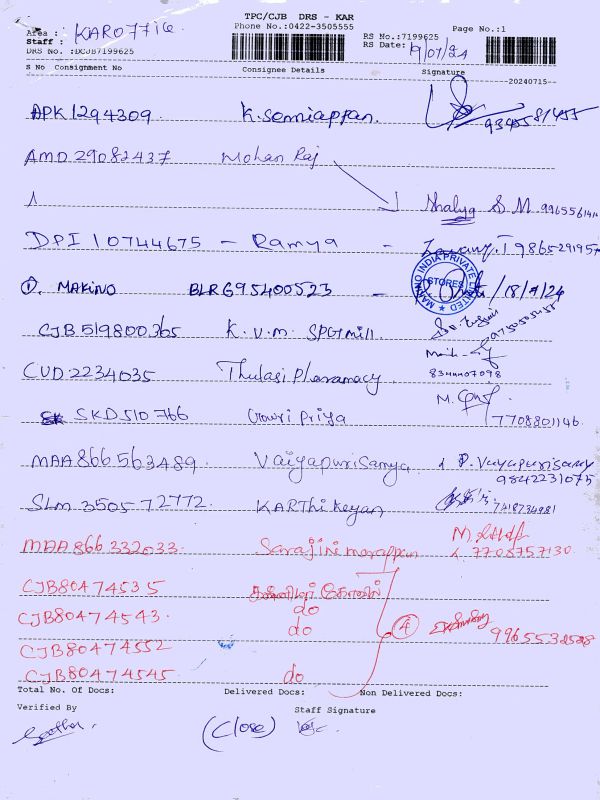 TPC/CJB DRS - KAR
Phone No.:0422-3505555
Area : KAR07716
Staff :
DRS No. :DCJB7199625
RS No.:7199625
RS Date: 19/07/24
Page No.:1
S No Consignment No Consignee Details Signature
20240715
APK1294309 K.Senniappan.
AMD 29082437 Mohan Raj
S M 9965561414
DPI 10744675 - Ramya - 9865291957
①. MAKINO BLR695400523 - /18/7/24
MAKINO INDIA PRIVATE LIMITED
STORES
CJB519800365 K.V.M. SPGMill.
CUD2234035 Thulasi Pharamacy.
8344407098
SKD510766 Gowri Priya
7708801146
MAA866563489. Vaiyapurisamya P. Vaiyapurisamy
9842231075
SLM 350572772. KARThiKeyan 7418734981
MAA866332033. Sarajini marappan 7708757130
CJB80474535
do
CJB80474543. do ④
CJB80474552
CJB80474545 do
Total No. Of Docs: Delivered Docs: Non Delivered Docs:
Verified By Staff Signature
(Close)